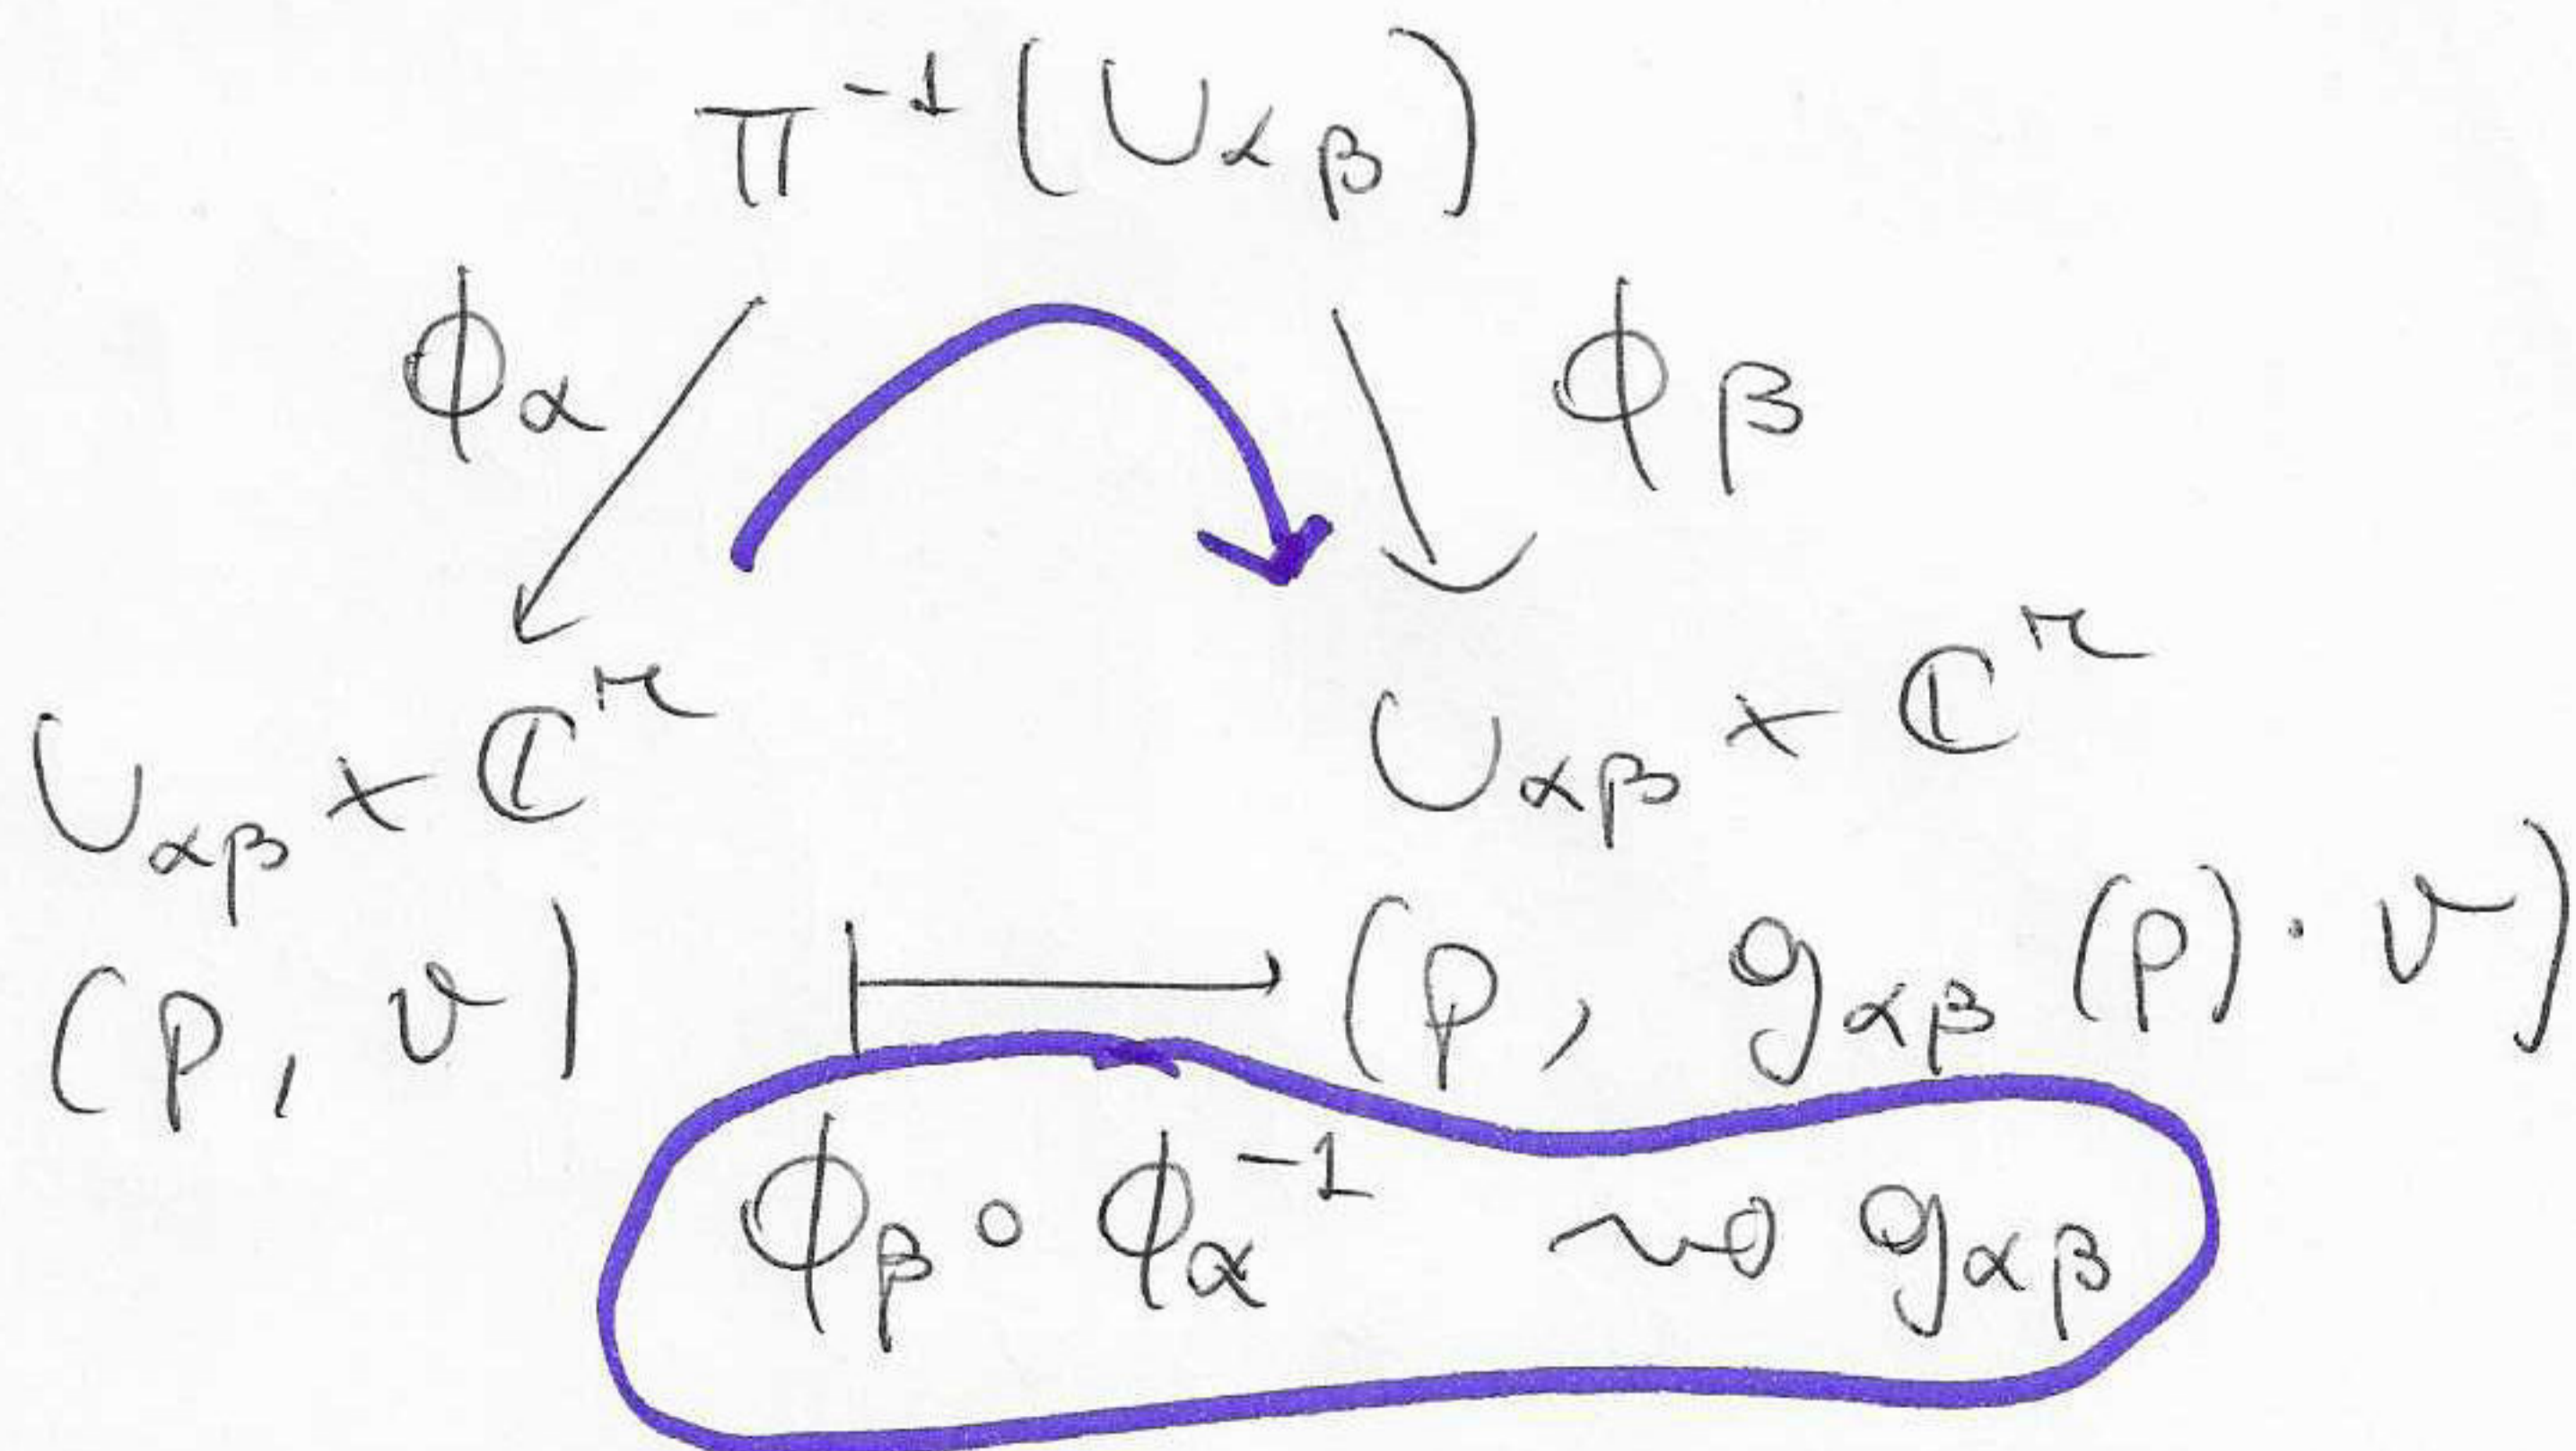 π⁻¹(U_αβ)
ϕ_α ϕ_β
U_αβ × ℂʳ U_αβ × ℂʳ
(p, v) ↦ (p, g_αβ(p)·v)
ϕ_β ∘ ϕ_α⁻¹ ⇝ g_αβ